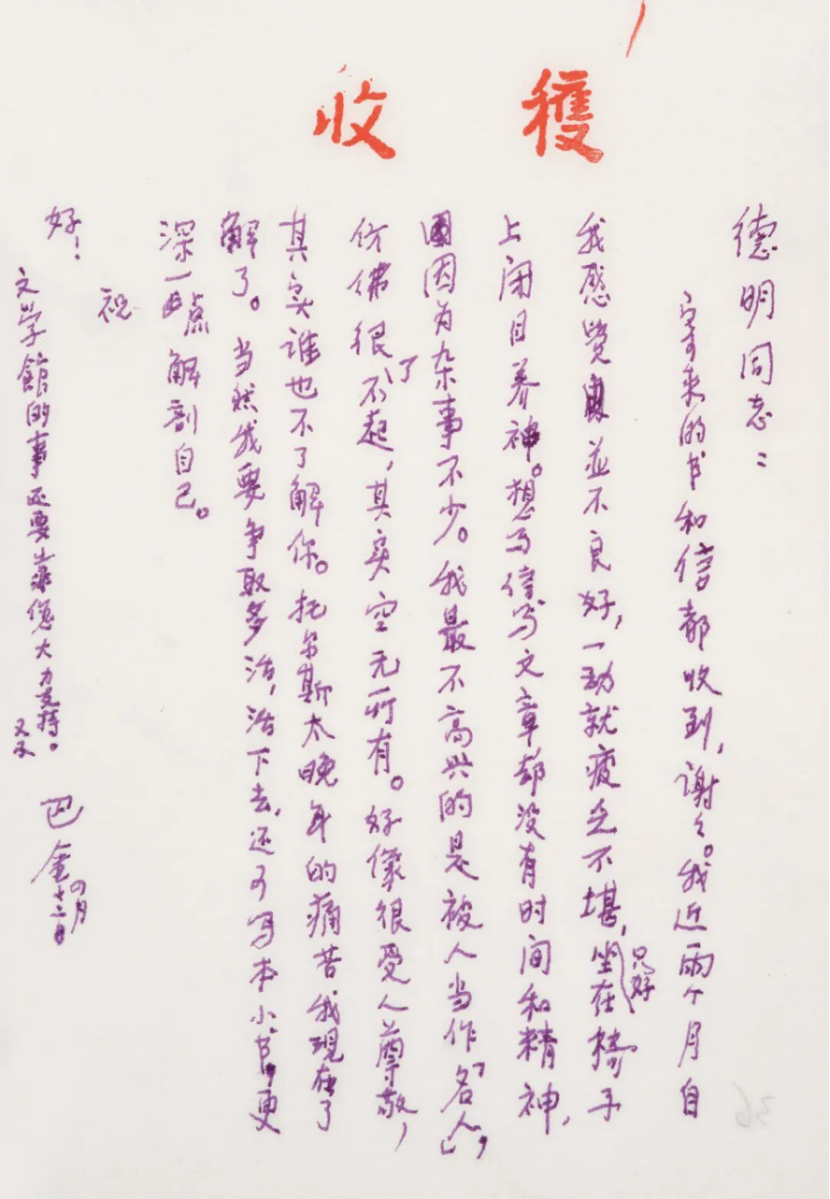 收穫
德明同志：
寄来的书和信都收到，谢々。我近兩个月自
我感覺並不良好，一动就疲乏不堪，只好坐在椅子
上闭目养神。想写信写文章都没有时间和精神，
因为杂事不少。我最不高兴的是被人当作「名人」，
仿佛很了不起，其实空无所有。好像很受人尊敬，
其实谁也不了解你。托尔斯太晚年的痛苦我現在了
解了。当然我要争取多活，活下去，还可写本小书，更
深一点解剖自己。
祝
好！
巴金
四月
十二日
文学館的事还要靠您大力支持。
又及
36